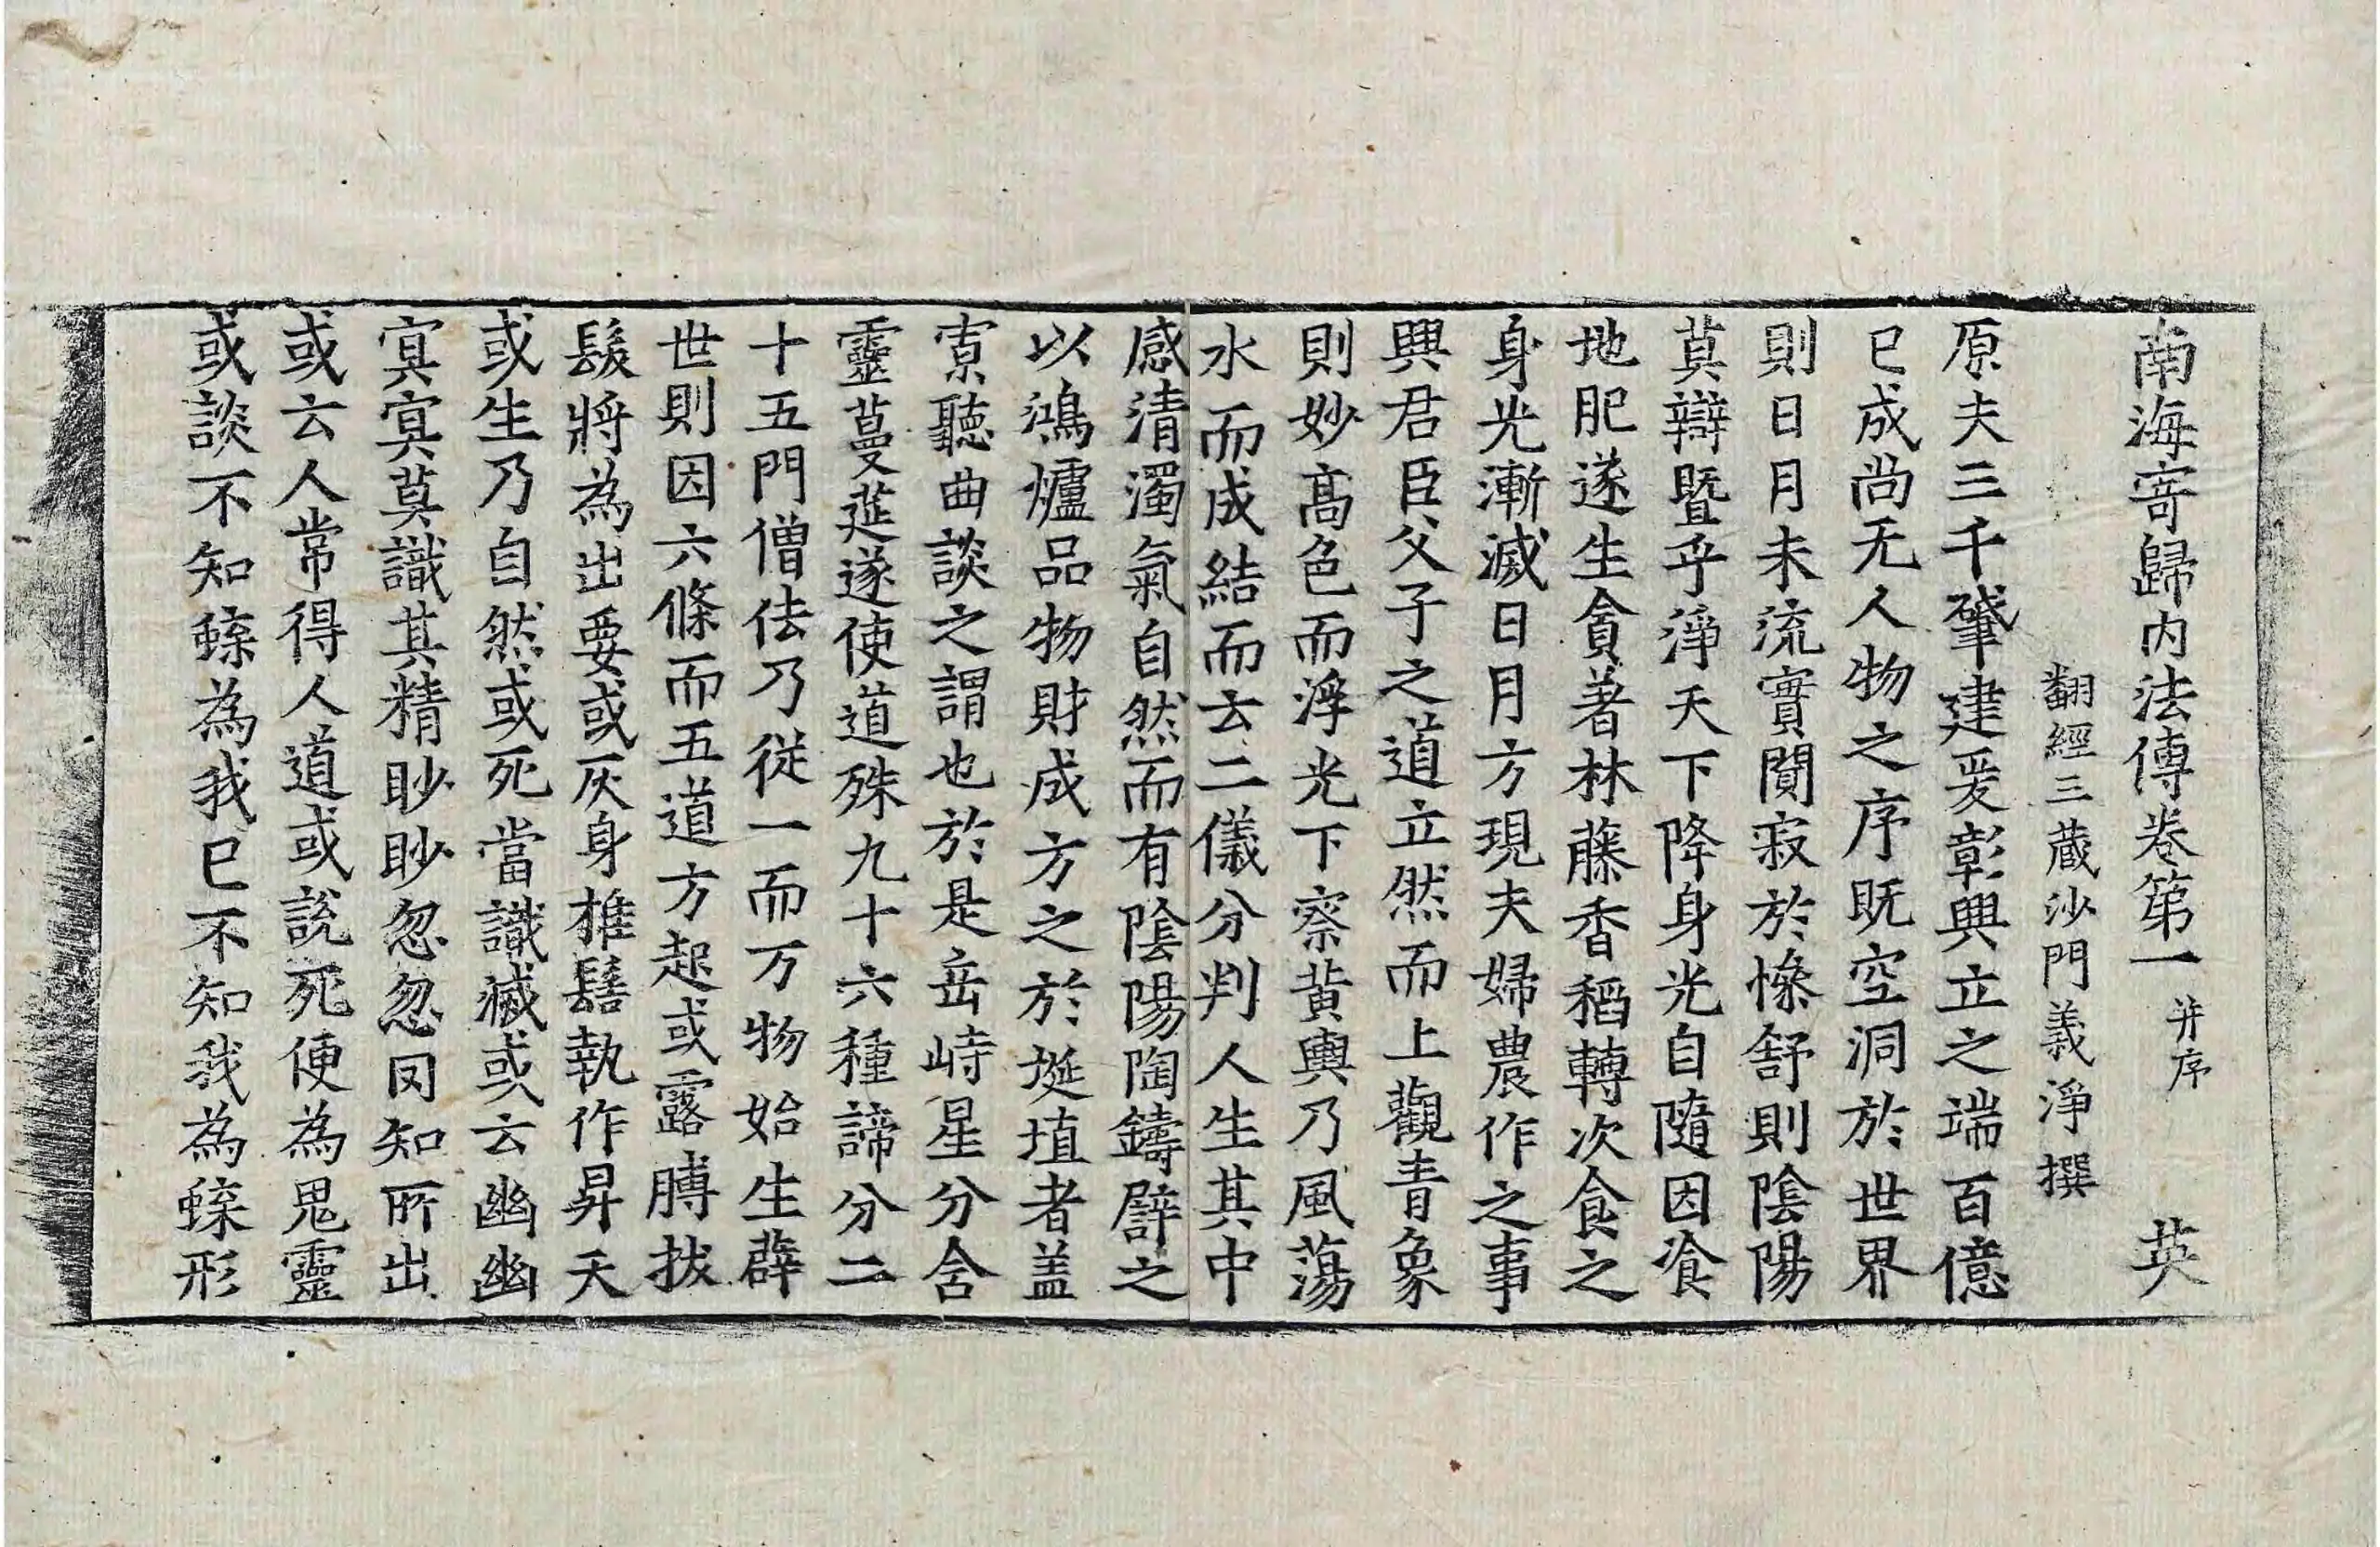 南海寄歸内法傳卷第一 并序 英
翻經三蔵沙門義淨撰
原夫三千肇建爰彰興立之端百億
已成尚无人物之序既空洞於世界
則日月未流實闃寂於慘舒則陰陽
莫辯暨乎淨天下降身光自隨因飡
地肥遂生貪著林藤香稻轉次食之
身光漸滅日月方現夫婦農作之事
興君臣父子之道立然而上觀青象
則妙高色而浮光下察黃輿乃風蕩
水而成結而云二儀分判人生其中
感清濁氣自然而有陰陽陶鑄譬之
以鴻爐品物財成方之於埏埴者盖
寡聽曲談之謂也於是岳峙星分含
靈蔓莚遂使道殊九十六種諦分二
十五門僧佉乃從一而万物始生薜
世則因六條而五道方起或露膊拔
髮將為出要或灰身椎髻執作昇天
或生乃自然或死當識滅或云幽幽
㝠㝠莫識其精眇眇忽忽罔知所出
或云人常得人道或說死便為鬼靈
或談不知蝶為我已不知我為蝶形